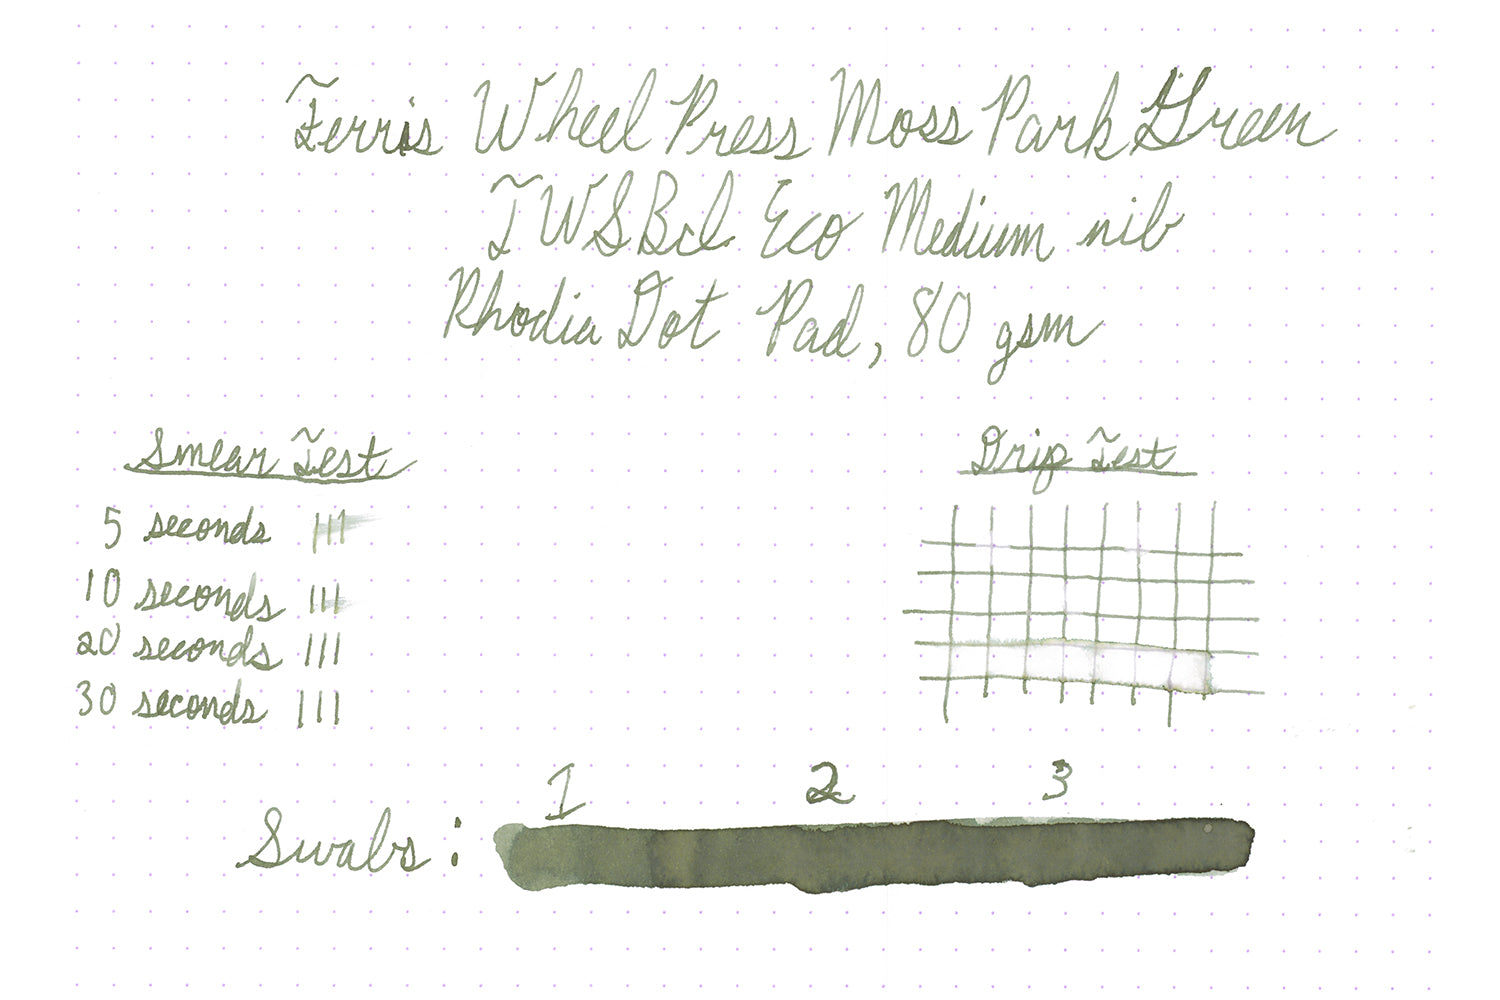 Ferris Wheel Press Moss Park Green
TWSBI Eco Medium nib
Rhodia Dot Pad, 80 gsm
Smear Test
5 seconds
10 seconds
20 seconds
30 seconds
Drip Test
1 2 3
Swabs: